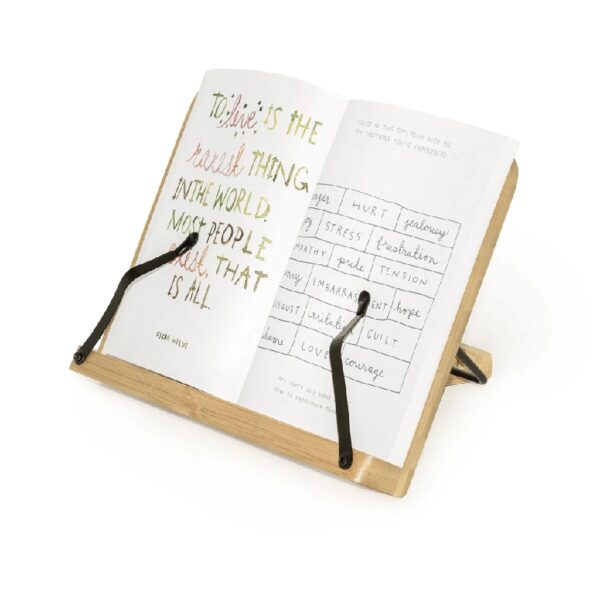 To live IS THE
rarest THING
IN THE WORLD.
MOST PEOPLE
exist, THAT
IS ALL.
OSCAR WILDE
COLOR IN THIS SPECTRUM WITH ALL
THE EMOTIONS YOU'VE EXPERIENCED
HURT jealousy
STRESS frustration
pride TENSION
EMBARRAS ENT hope
irritati GUILT
LOVE courage